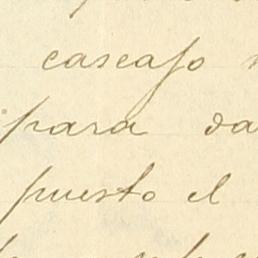 cascajo
para da
puesto el